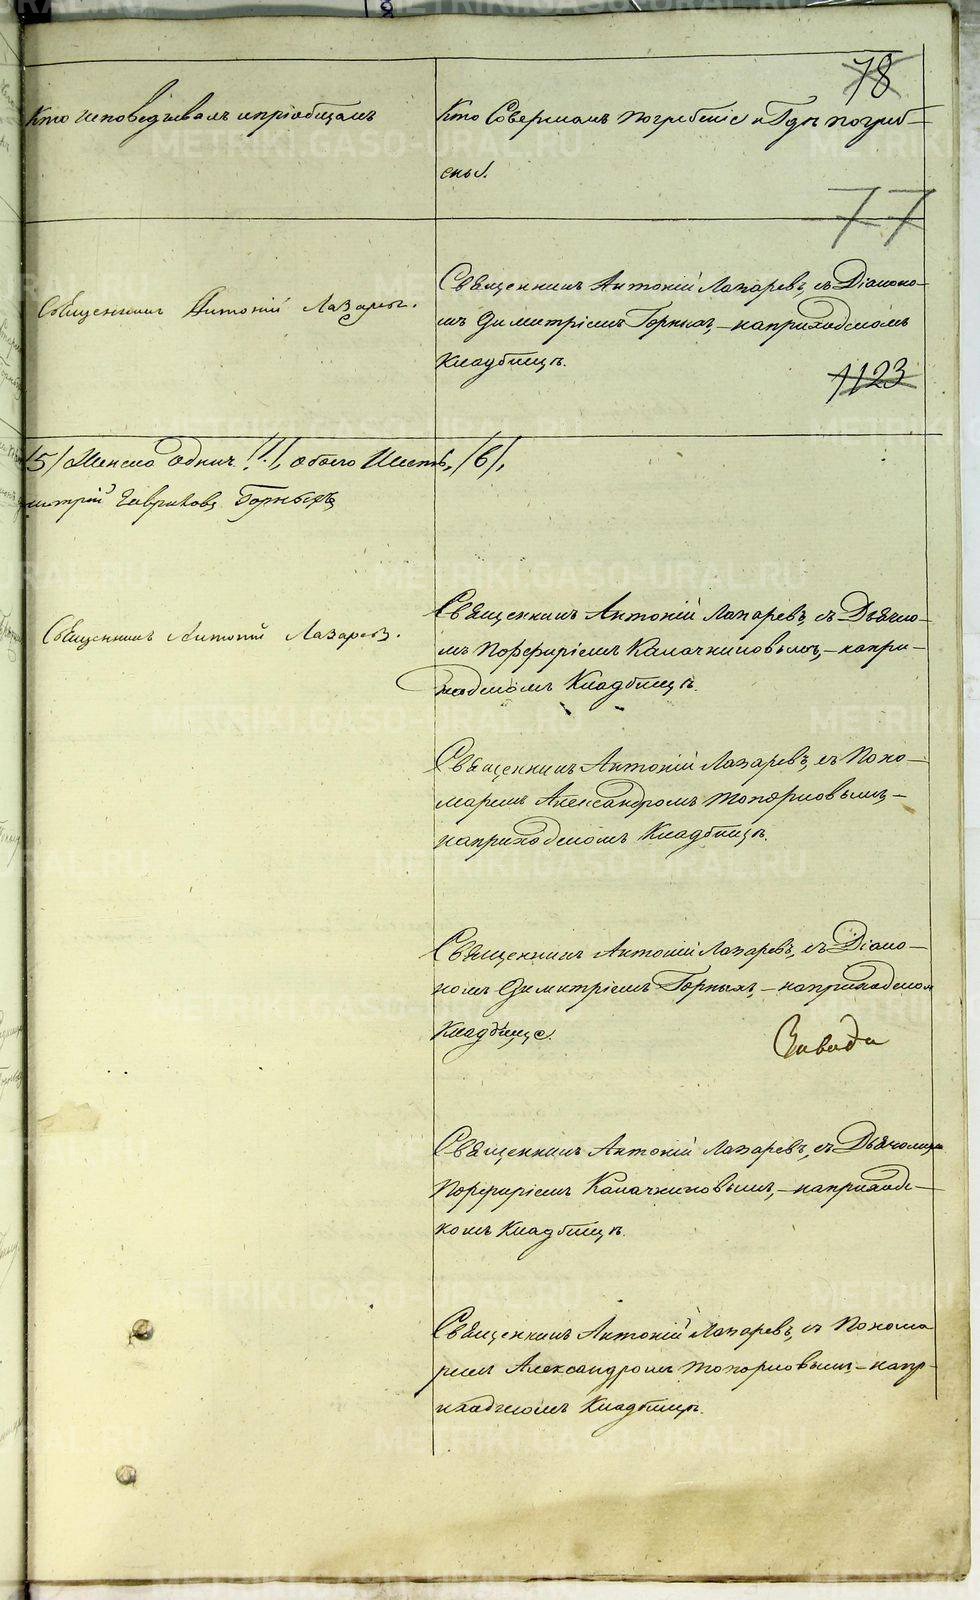 78
Кто исповѣдывалъ и пріобщалъ
Кто Совершалъ погребеніе и Гдѣ погреб-
ены.
77
Священникъ Антоній Лазаревъ.
Священникъ Антоній Лазаревъ, съ Діаконо-
мъ Димитріемъ Горныхъ, - на приходскомъ
Кладбищѣ.
1123
/5/ Женска Одинъ /1/, обоего Шесть, /6/,
митрій Гавриловъ Горныхъ
Священникъ Антоній Лазаревъ.
Священникъ Антоній Лазаревъ, съ Дьячко-
мъ Порфиріемъ Калачниковымъ, - на при-
ходскомъ Кладбищѣ.
Священникъ Антоній Лазаревъ, съ Поно-
маремъ Александромъ Топорковымъ, -
на приходскомъ Кладбищѣ.
Священникъ Антоній Лазаревъ, съ Діако-
номъ Димитріемъ Горныхъ, - на приходском
Кладбище.
Завода
Священникъ Антоній Лазаревъ, съ Дьячкомъ
Порфиріемъ Калачниковымъ, - на приходс-
комъ Кладбищѣ.
Священникъ Антоній Лазаревъ, съ Понома
ремъ Александромъ Топорковымъ, - на пр-
иходскомъ Кладбищѣ.
METRIKI.GASO-URAL.RU